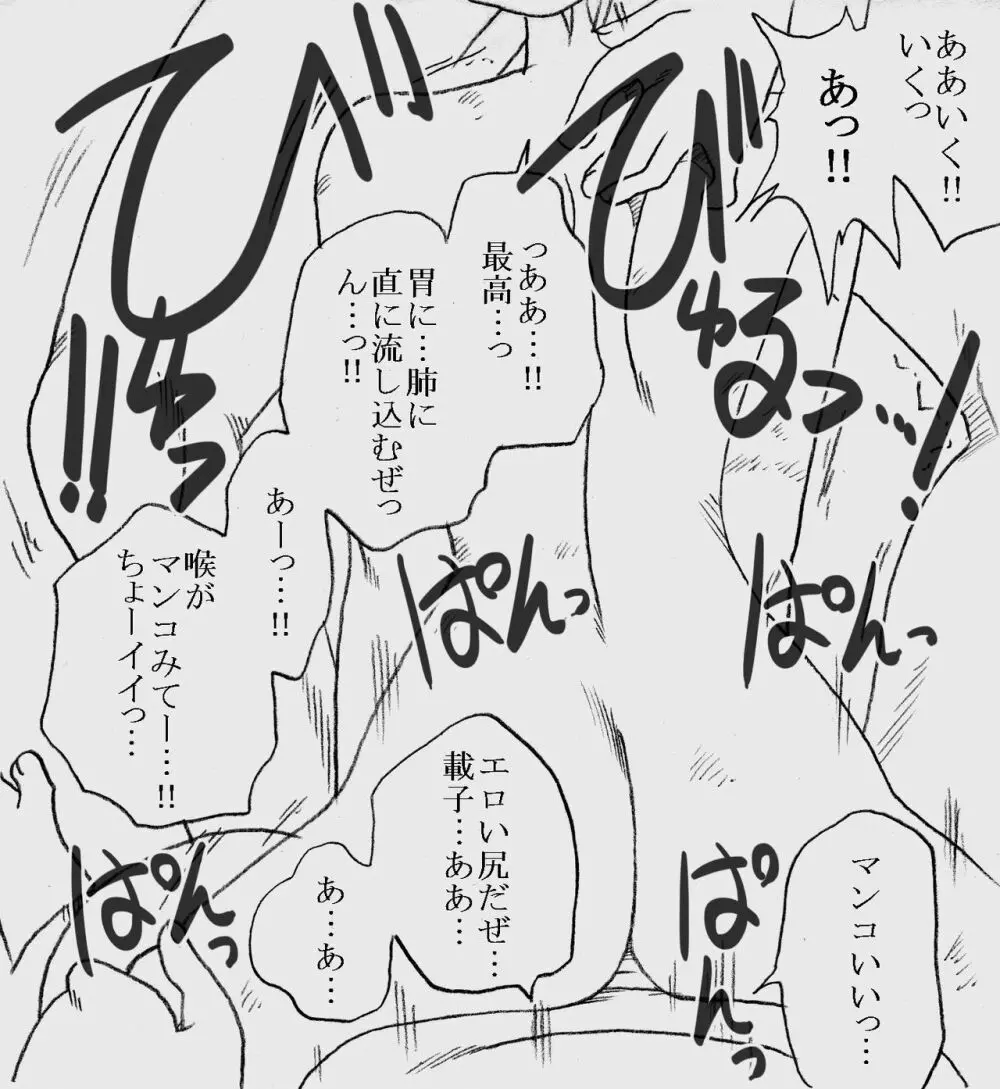 ああいく!!
いくっ
あっ!!
びゅるるっ…!
っああ…!!
最高…っ
胃に…肺に
直に流し込むぜっ
ん…っ!!
びちっ!!
あーっ…!!
喉が
マンコみてー…!!
ちょーイイっ…
ぱんっ
ぱんっ
マンコいいっ…
ぱんっ
エロい尻だぜ…
載子…ああ…
あ…あ…
ぱんっ